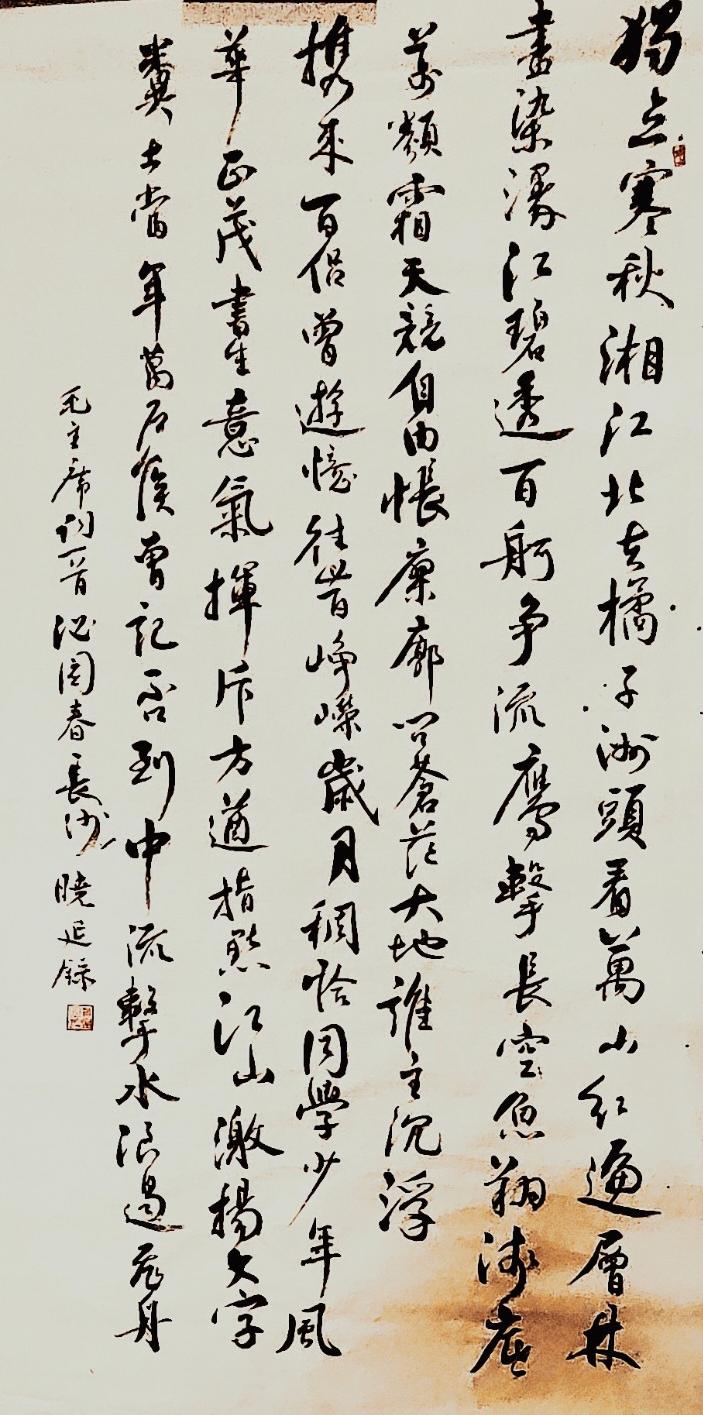 獨立寒秋湘江北去橘子洲頭看萬山紅遍層林
盡染漫江碧透百舸争流鹰擊長空魚翔淺底
萬類霜天競自由悵寥廓問蒼茫大地誰主沉浮
携來百侣曾遊憶往昔崢嶸歲月稠恰同學少年風
華正茂書生意氣揮斥方遒指點江山激揚文字
糞土當年萬户侯曾記否到中流擊水浪遏飛舟
毛主席詞一首沁園春長沙 曉延錄